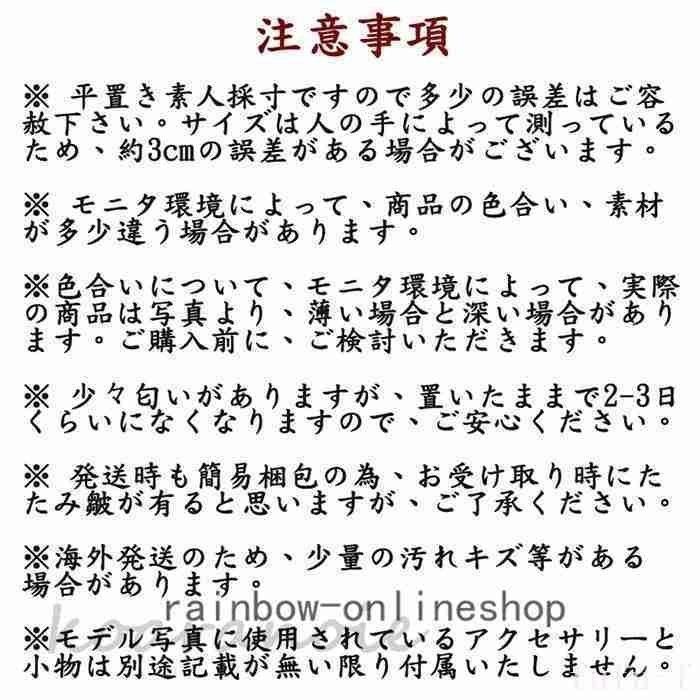 注意事項
※ 平置き素人採寸ですので多少の誤差はご容
赦下さい。サイズは人の手によって測っている
ため、約3cmの誤差がある場合がございます。
※ モニタ環境によって、商品の色合い、素材
が多少違う場合があります。
※色合いについて、モニタ環境によって、実際
の商品は写真より、薄い場合と深い場合があり
ます。ご購入前に、ご検討いただきます。
※ 少々匂いがありますが、置いたままで2-3日
くらいになくなりますので、ご安心ください。
※ 発送時も簡易梱包の為、お受け取り時にた
たみ皺が有ると思いますが、ご了承ください。
※海外発送のため、少量の汚れキズ等がある
場合があります。
rainbow-onlineshop
※モデル写真に使用されているアクセサリーと
小物は別途記載が無い限り付属いたしません。